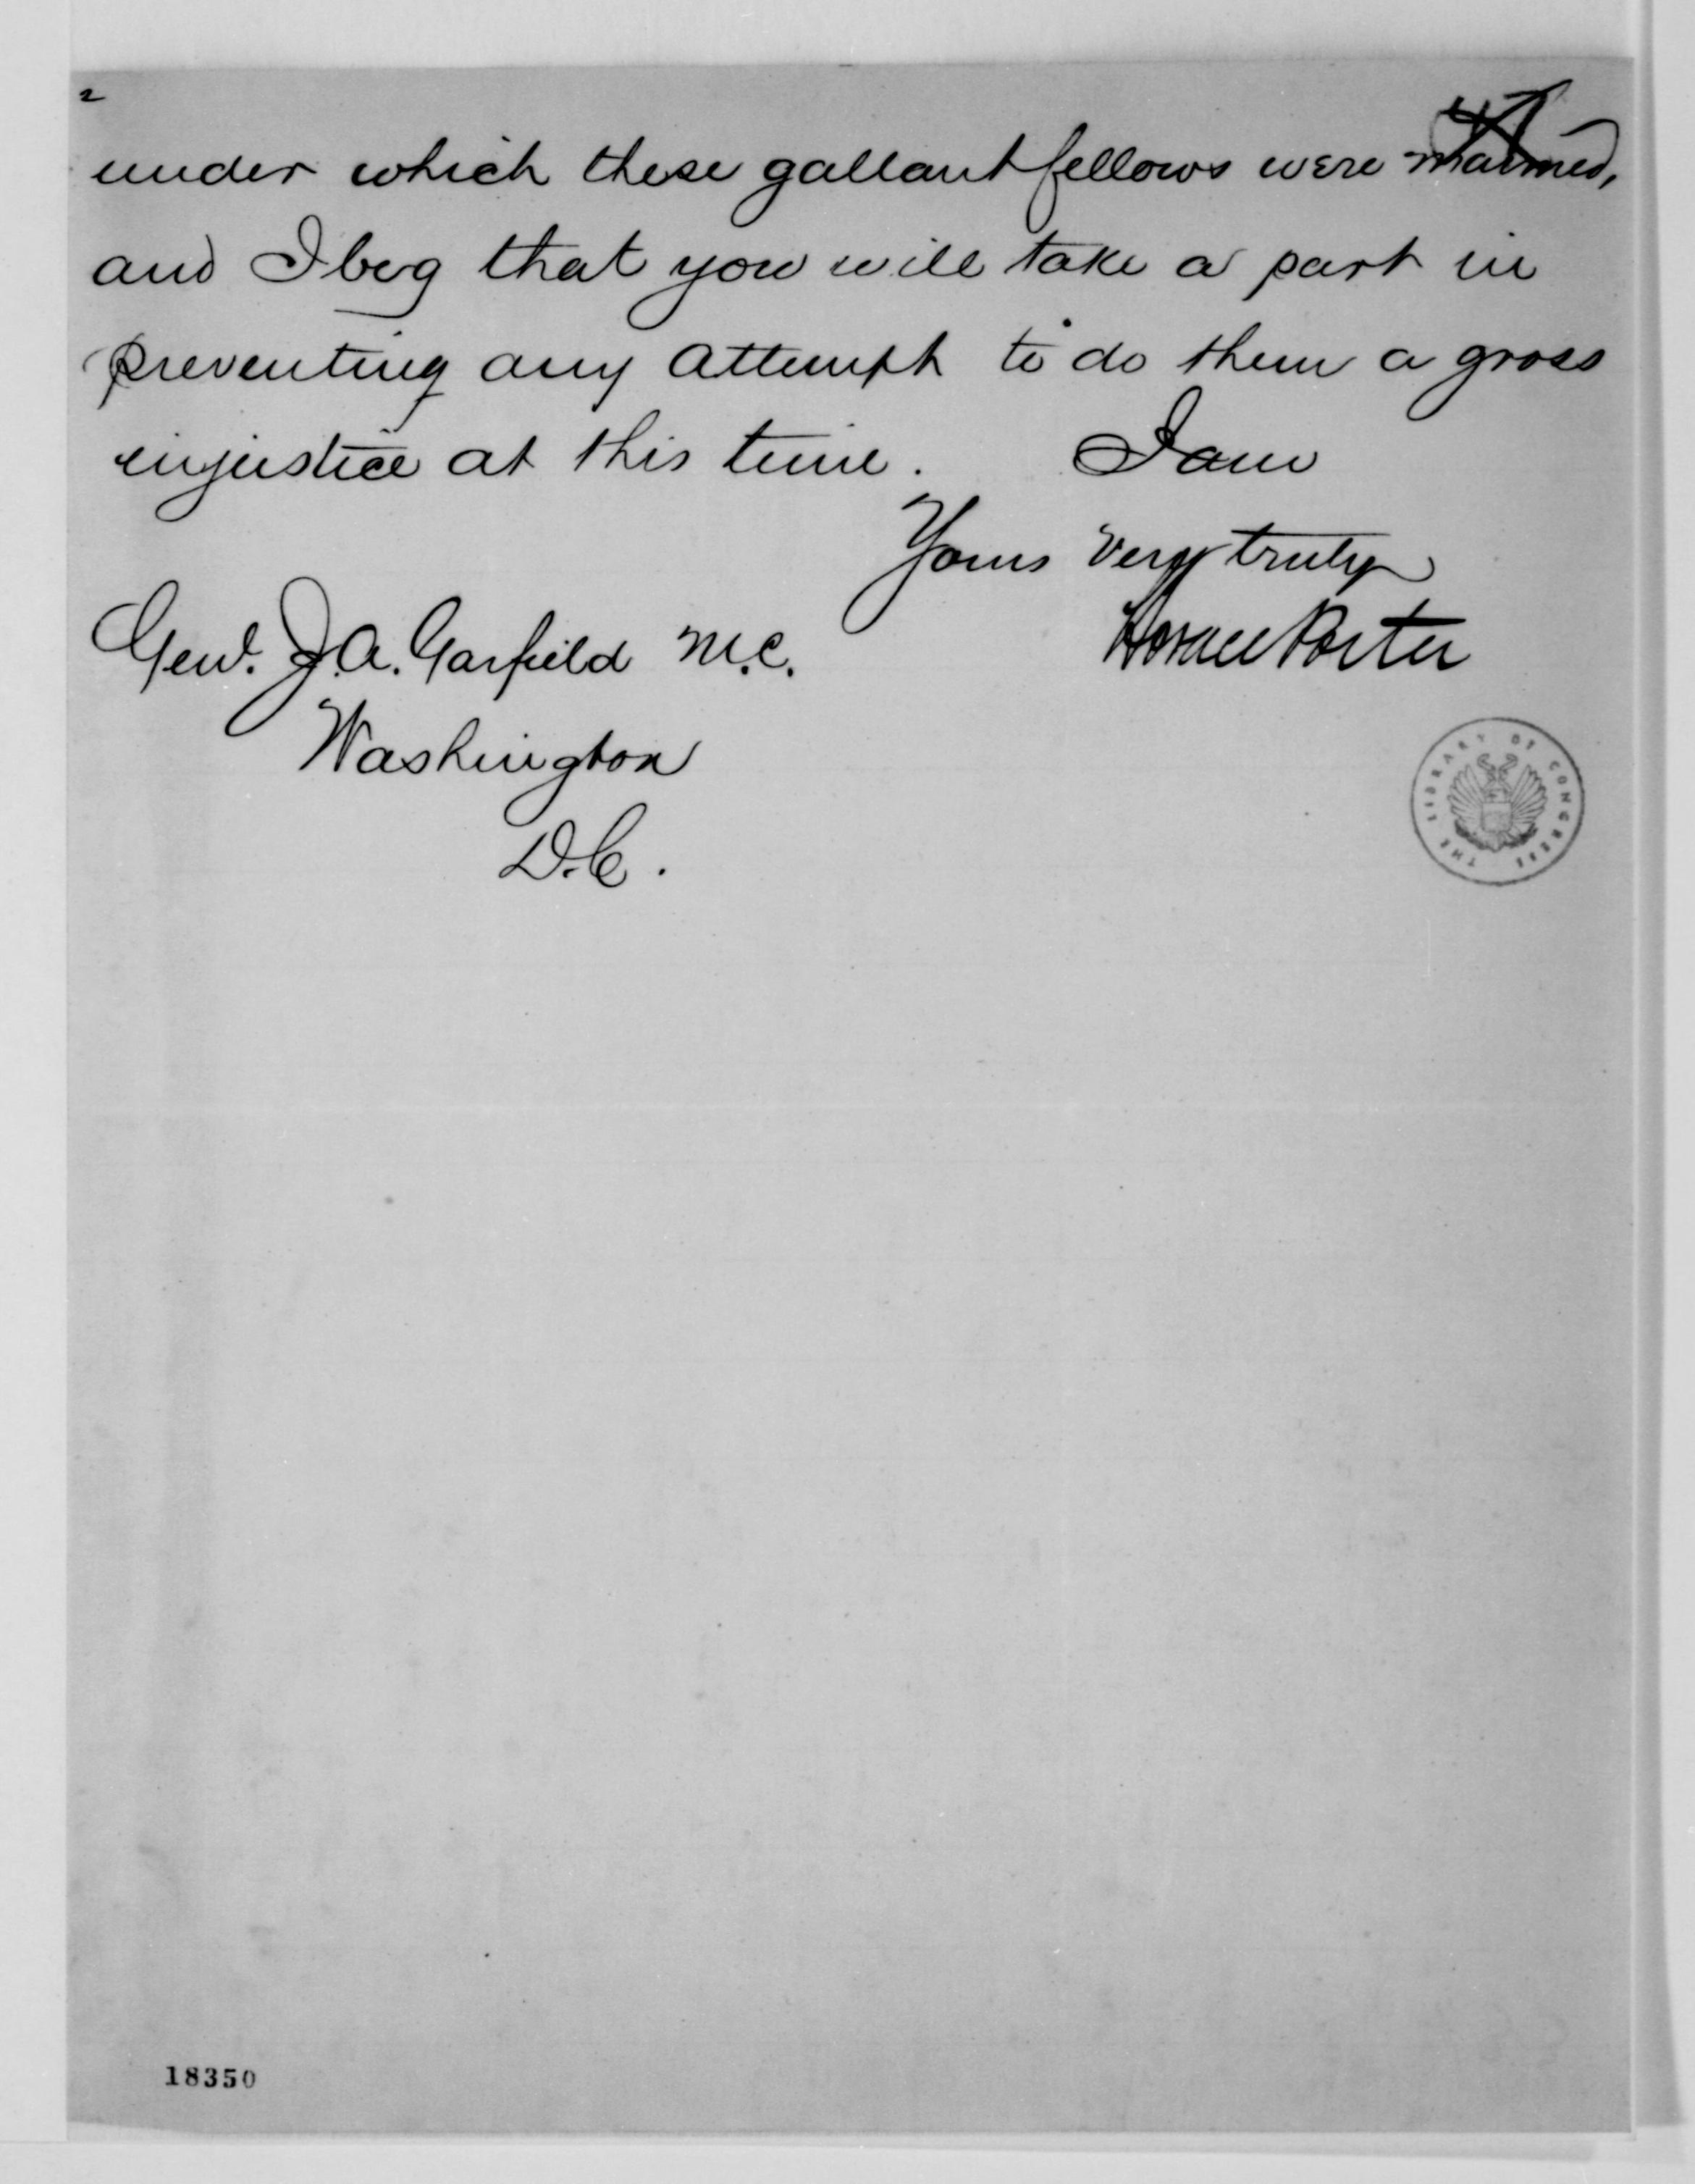 2
under which these gallant fellows were maimed,
and I beg that you will take a part in
preventing any attempt to do them a gross
injustice at this time. I am
Yours very truly
Horace Porter
Genl. J. A. Garfield M.C.
Washington
D.C.
THE LIBRARY OF CONGRESS
18350